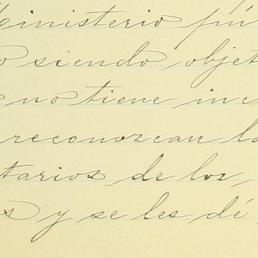 Ministerio pú
o siendo objet
no tiene in
reconozcan la
tarios de los,
s y se les dé